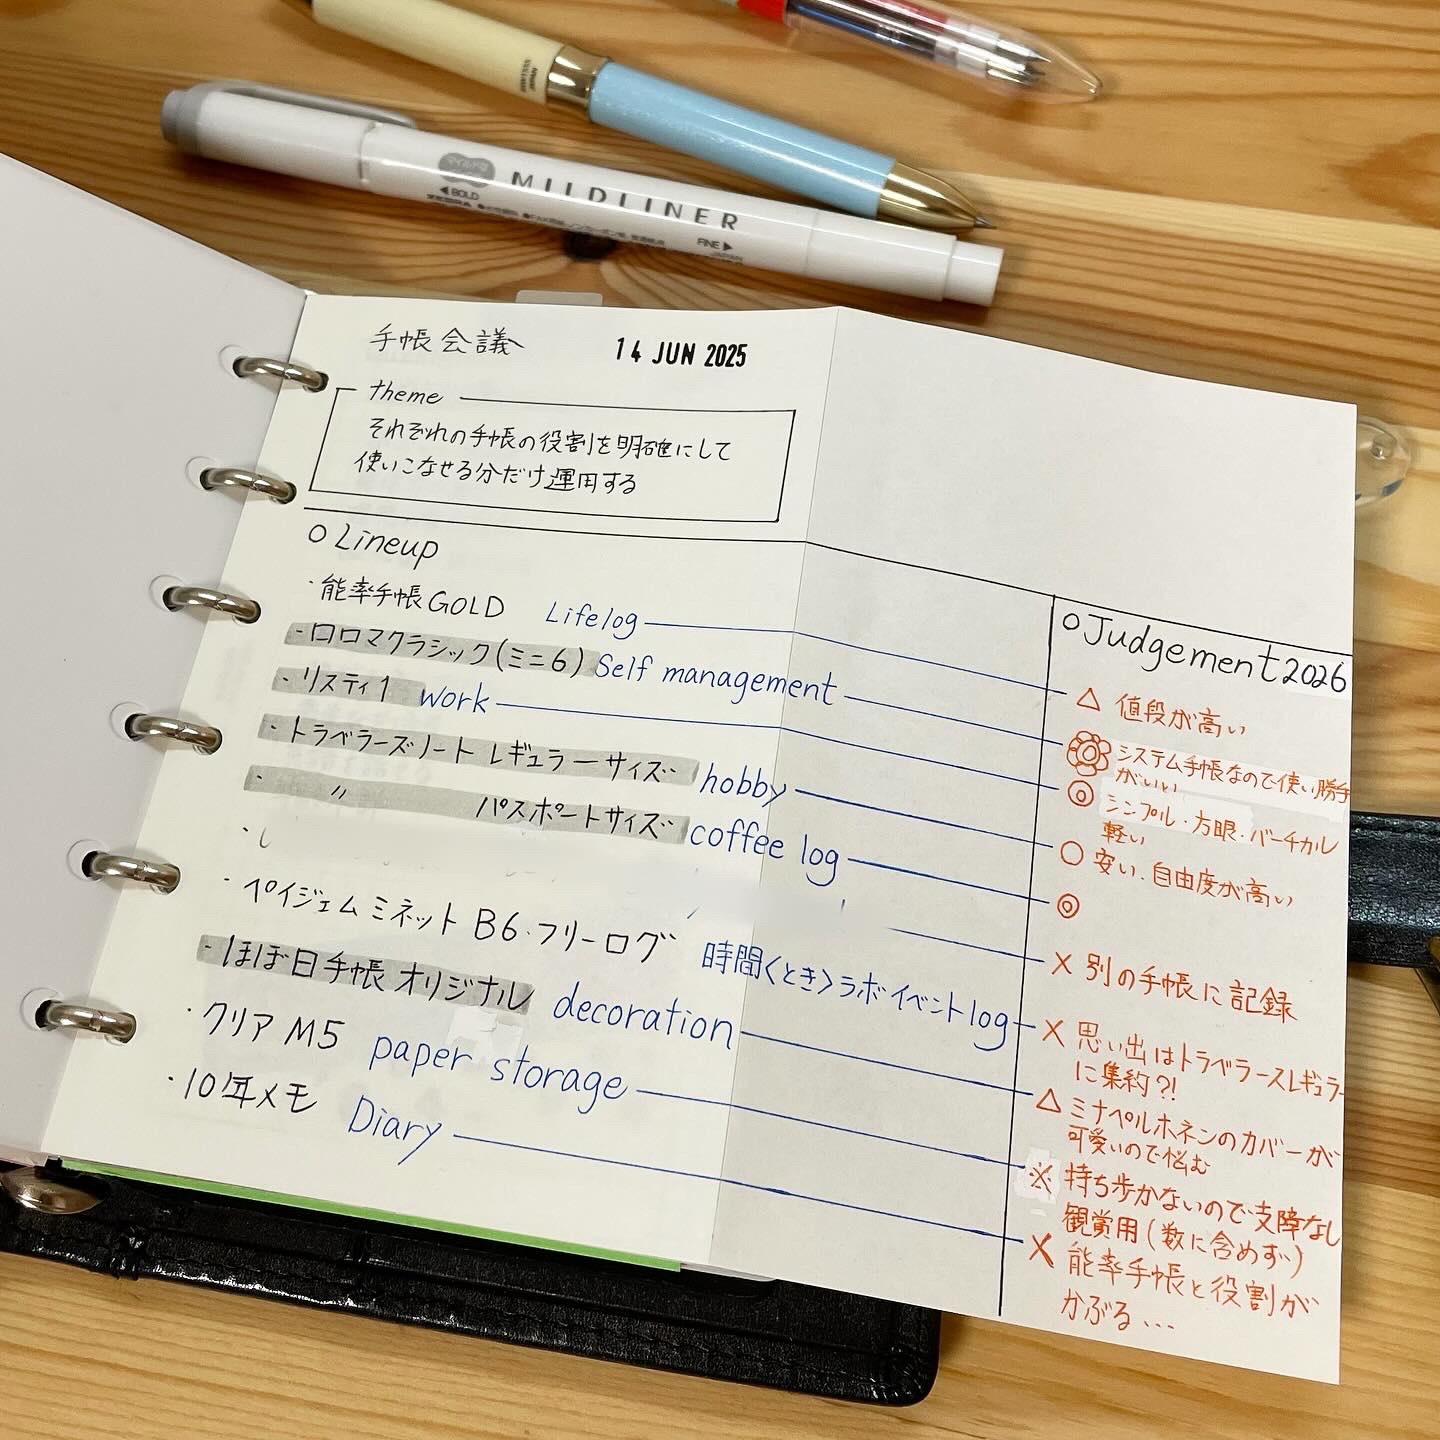 マイルドライナー
MILDLINER
◀BOLD
ZEBRA
FINE▶
JAPAN
手帳会議
14 JUN 2025
theme
それぞれの手帳の役割を明確にして
使いこなせる分だけ運用する
○ Lineup
・能率手帳GOLD Lifelog
・ロロマクラシック(ミニ6) Self management
・リスティ1 work
・トラベラーズノート レギュラーサイズ hobby
・ 〃 パスポートサイズ coffee log
・ペイジェムミネット B6・フリーログ 時間〈とき〉ラボイベントlog
・ほぼ日手帳オリジナル decoration
・クリアM5 paper storage
・10年メモ Diary
○Judgement2026
△ 値段が高い
システム手帳なので使い勝手
がいい
◎ シンプル・方眼・バーチカル
軽い
○ 安い、自由度が高い
◎
× 別の手帳に記録
× 思い出はトラベラースレギュラー
に集約?!
△ ミナペルホネンのカバーが
可愛いので悩む
※ 持ち歩かないので支障なし
観賞用(数に含めず)
× 能率手帳と役割が
かぶる…